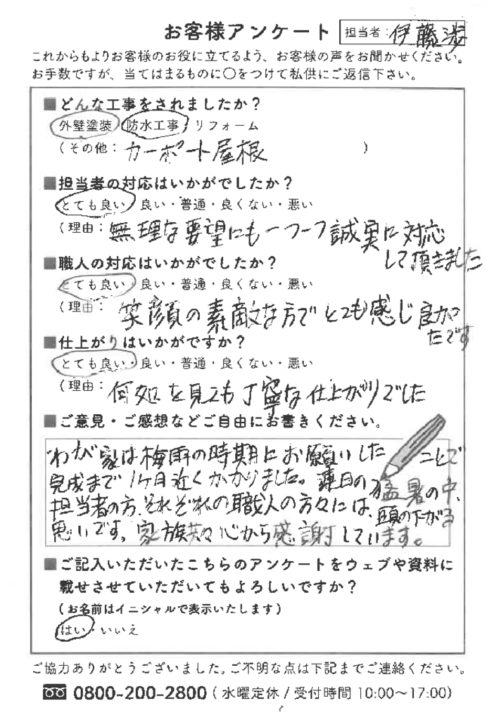 お客様アンケート 担当者：伊藤渉
これからもよりお客様のお役に立てるよう、お客様の声をお聞かせください。
お手数ですが、当てはまるものに〇をつけて私供にご返信下さい。
■どんな工事をされましたか？
外壁塗装・防水工事・リフォーム
（その他：カーポート屋根）
■担当者の対応はいかがでしたか？
とても良い・良い・普通・良くない・悪い
（理由：無理な要望にも一つ一つ誠実に対応
して頂きました
■職人の対応はいかがでしたか？
とても良い・良い・普通・良くない・悪い
（理由：笑顔の素敵な方でとても感じ良かっ
たです
■仕上がりはいかがですか？
とても良い・良い・普通・良くない・悪い
（理由：何処を見ても丁寧な仕上がりでした
■ご意見・ご感想などご自由にお書きください。
わが家は梅雨の時期にお願いしたことで
完成まで1ヶ月近くかかりました。連日の猛暑の中、
担当者の方、それぞれの職人の方々には、頭の下がる
思いです。家族共々心から感謝しています。
■ご記入いただいたこちらのアンケートをウェブや資料に
載せさせていただいてもよろしいですか？
（お名前はイニシャルで表示いたします）
はい・いいえ
ご協力ありがとうございました。ご不明な点は下記までご連絡ください。
0800-200-2800（水曜定休/受付時間 10:00～17:00）